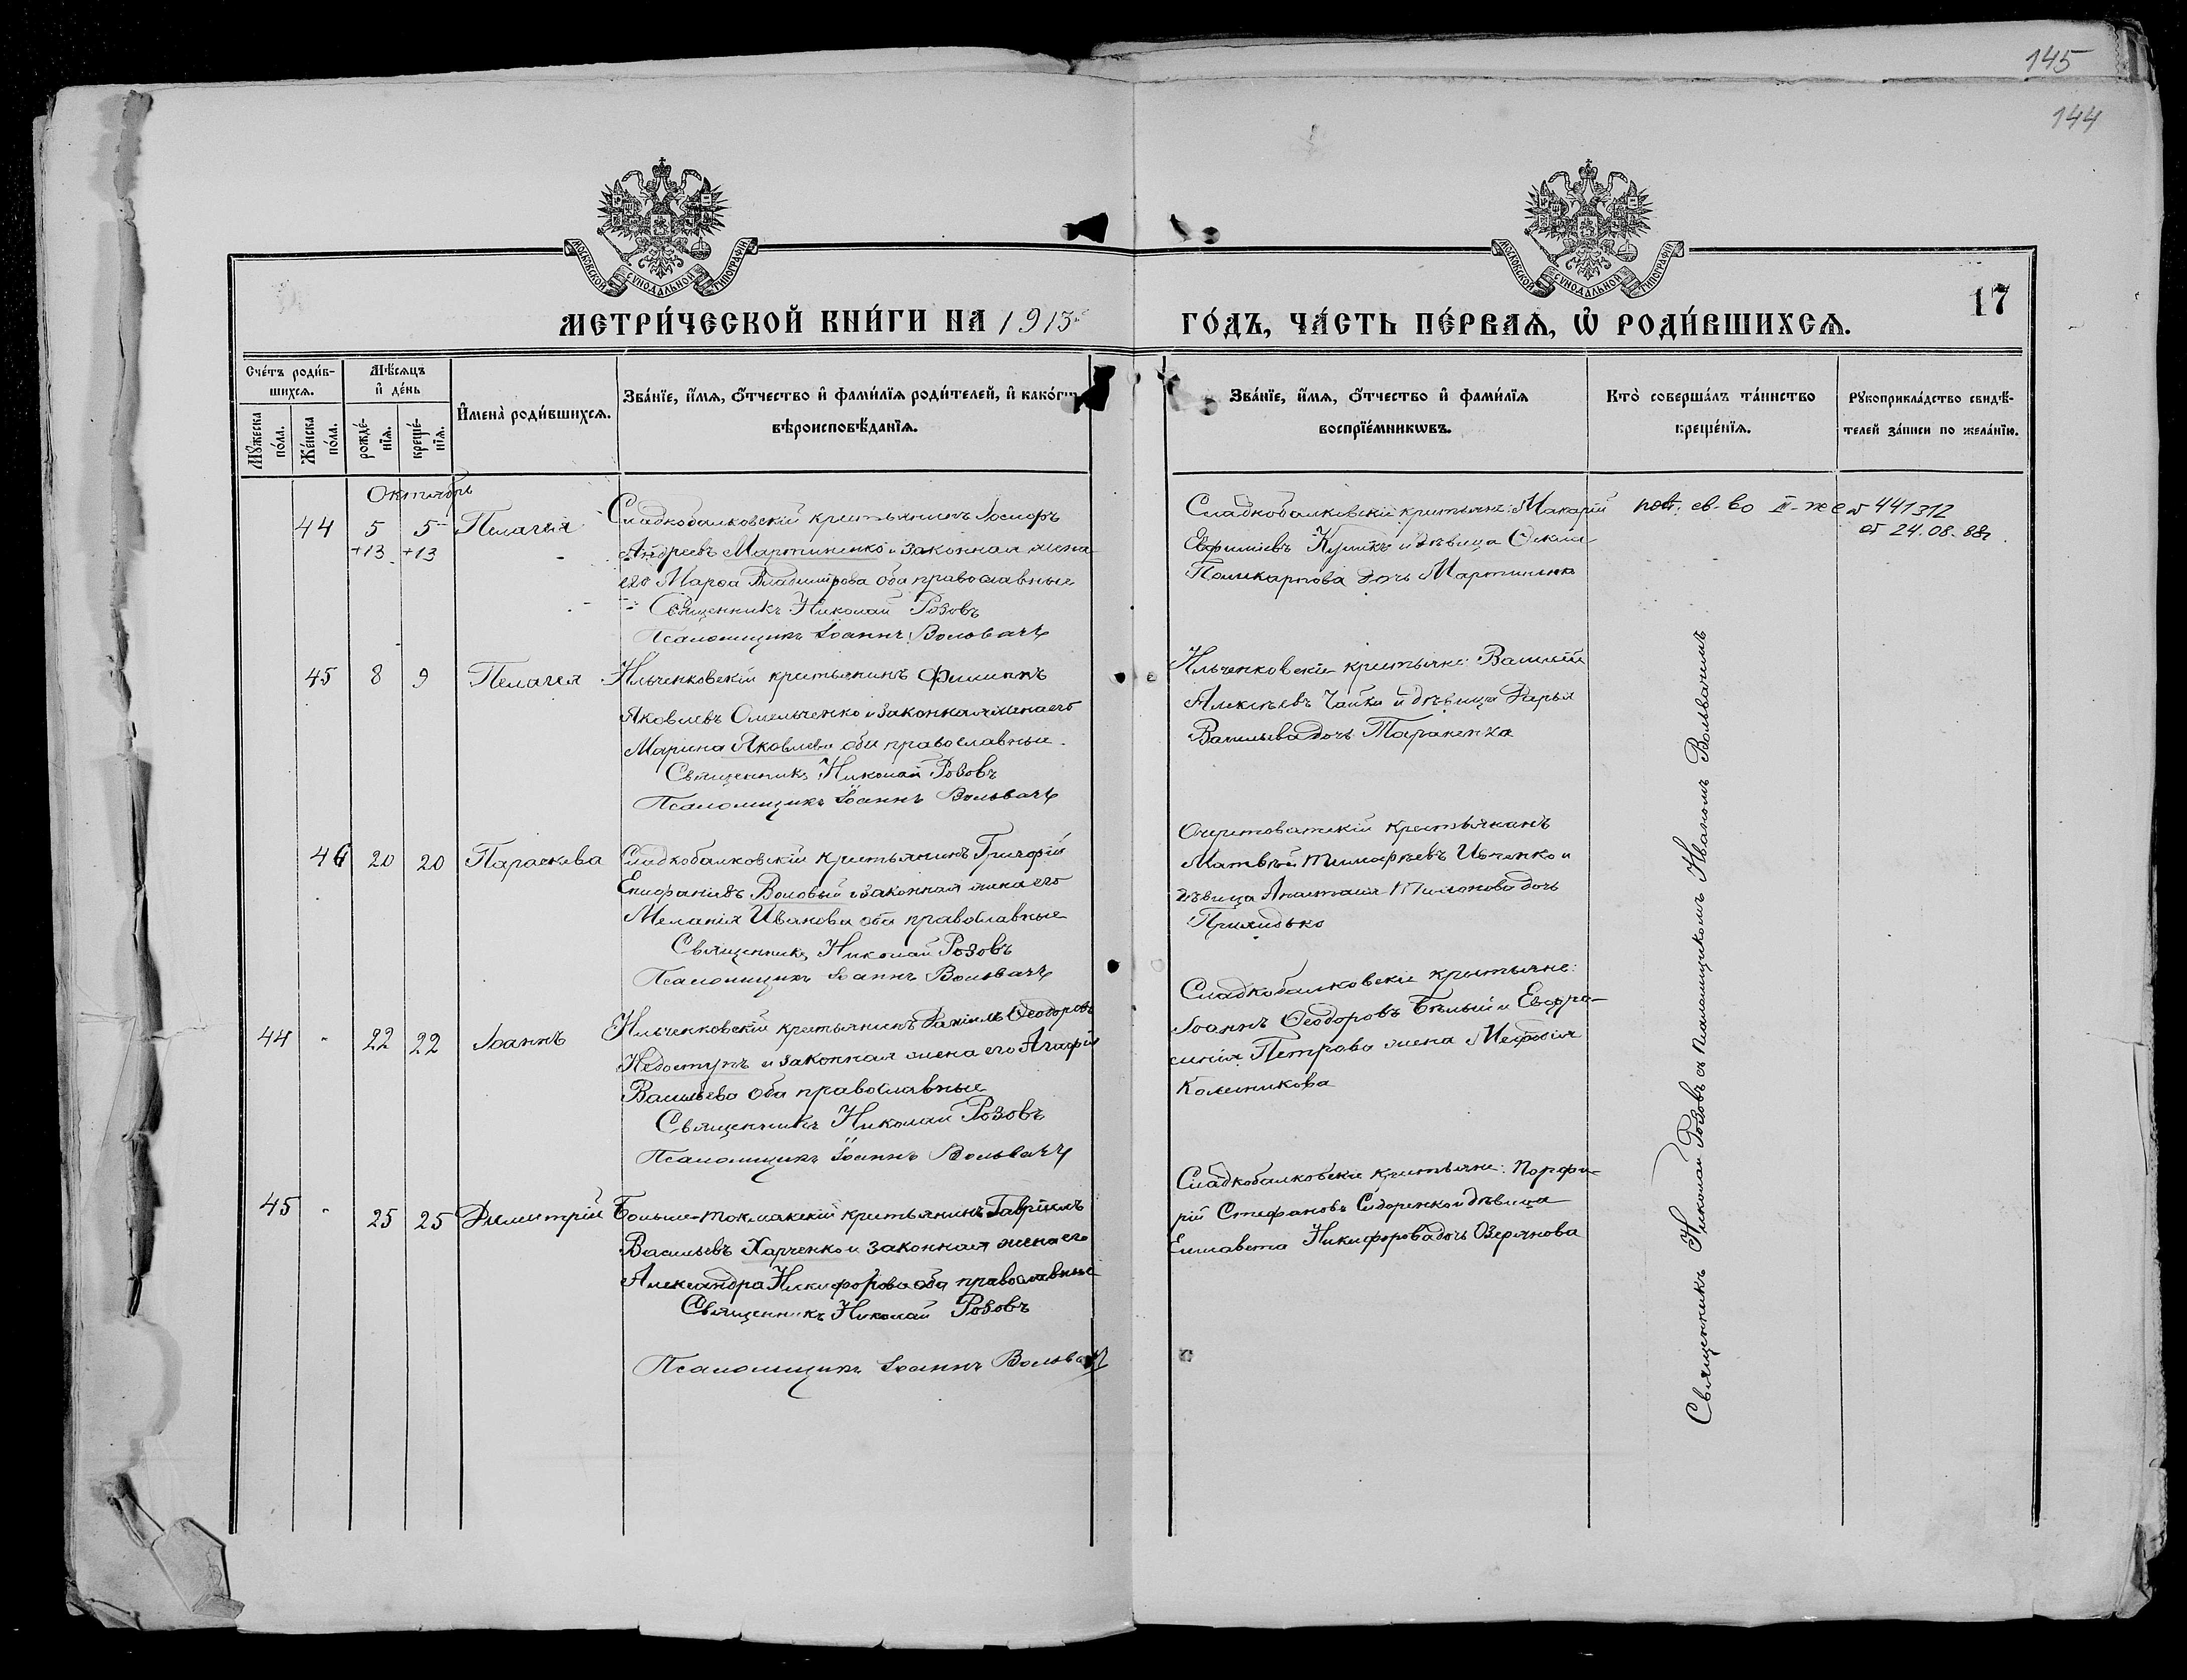 145
144
МОСКОВСКОЙ СѴНОДАЛЬНОЙ ТИПОГРАФІИ
МОСКОВСКОЙ СѴНОДАЛЬНОЙ ТИПОГРАФІИ
17
МЕТРИ́ЧЕСКОЙ КНИ́ГИ НА 1913й
ГО́ДЪ, ЧА́СТЬ ПЕ́РВАЯ, Ѡ҆ РОДИ́ВШИХСЯ.
Сче́тъ роди́в-
шихся.
Мѣ́сяцъ
и҆ де́нь
Мꙋжеска по́ла.
Же́нска по́ла.
рожде́-
нїя.
креще́-
нїя.
И҆мена̀ роди́вшихся.
Зва́нїе, и҆́мя, ѻ҆́тчество и҆ фами́лїя роди́телей, и҆ како́гѡ
вѣроисповѣ́данїя.
Зва́нїе, и҆́мя, ѻ҆́тчество и҆ фами́лїя
воспрїе́мникѡвъ.
Кто̀ соверша́лъ та́инство
креще́нїя.
Рꙋкоприкла́дство свидѣ́-
телей за́писи по жела́нїю.
Октябрь
44 5 5 Пелагія
+13 +13
Сладкобалковскій крестьянинъ Іосифъ
Андреевъ Мартиненко и законная жена
его Марѳа Владимірова оба православные
Священникъ Николай Розовъ
Псаломщикъ Іоаннъ Вольвачъ
Сладкобалковскіе крестьяне: Макарій
Евфиміевъ Куликъ и дѣвица
Поликарпова дочь Мартиненко
пов. св-во II-же № 441312
от 24.08.88г.
45 8 9 Пелагея
Ильченковскій крестьянинъ Филиппъ
Яковлевъ Омельченко и законная жена его
Марина Яковлева оба православные.
Священникъ Николай Розовъ
Псаломщикъ Іоаннъ Вольвачъ
Ильченковскіе крестьяне: Василій
Алексѣевъ Чайка и дѣвица Дарья
Васильева дочь
46 20 20 Параскева
Сладкобалковскій крестьянинъ
Епифаніевъ Воловый и законная жена его
Меланія Иванова оба православные
Священникъ Николай Розовъ
Псаломщикъ Іоаннъ Вольвачъ
крестьянинъ
Матвѣй Тимофѣевъ Ивченко и
дѣвица Анастасія дочь
44 - 22 22 Іоаннъ
Ильченковскій крестьянинъ Даніилъ Ѳеодоровъ
Недоступъ и законная жена его Агафія
Васильева оба православные
Священникъ Николай Розовъ
Псаломщикъ Іоаннъ Вольвачъ
Сладкобалковскіе крестьяне:
Іоаннъ Ѳеодоровъ Бѣлый и Евфро-
синія Петрова жена Меѳодія
Колесникова
45 - 25 25 Димитрій
Больше-Токмакскій крестьянинъ Гавріилъ
Васильевъ Харченко и законная жена его
Александра Никифорова оба православные
Священникъ Николай Розовъ
Псаломщикъ Іоаннъ Вольвачъ
Сладкобалковскіе крестьяне: Порфи-
рій Стефановъ Сидоренко и дѣвица
Елисавета Никифорова дочь Озерянова
Священникъ Николай Розовъ съ псаломщикомъ Иваномъ Вольвачемъ